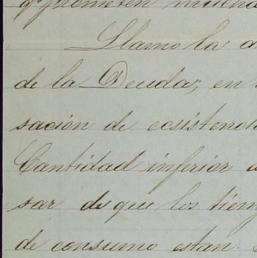 prometen
Llamo la a
de la Deuda, en
sación de existenci
Cantidad inferior
sar de que los tiem
de consumo estan